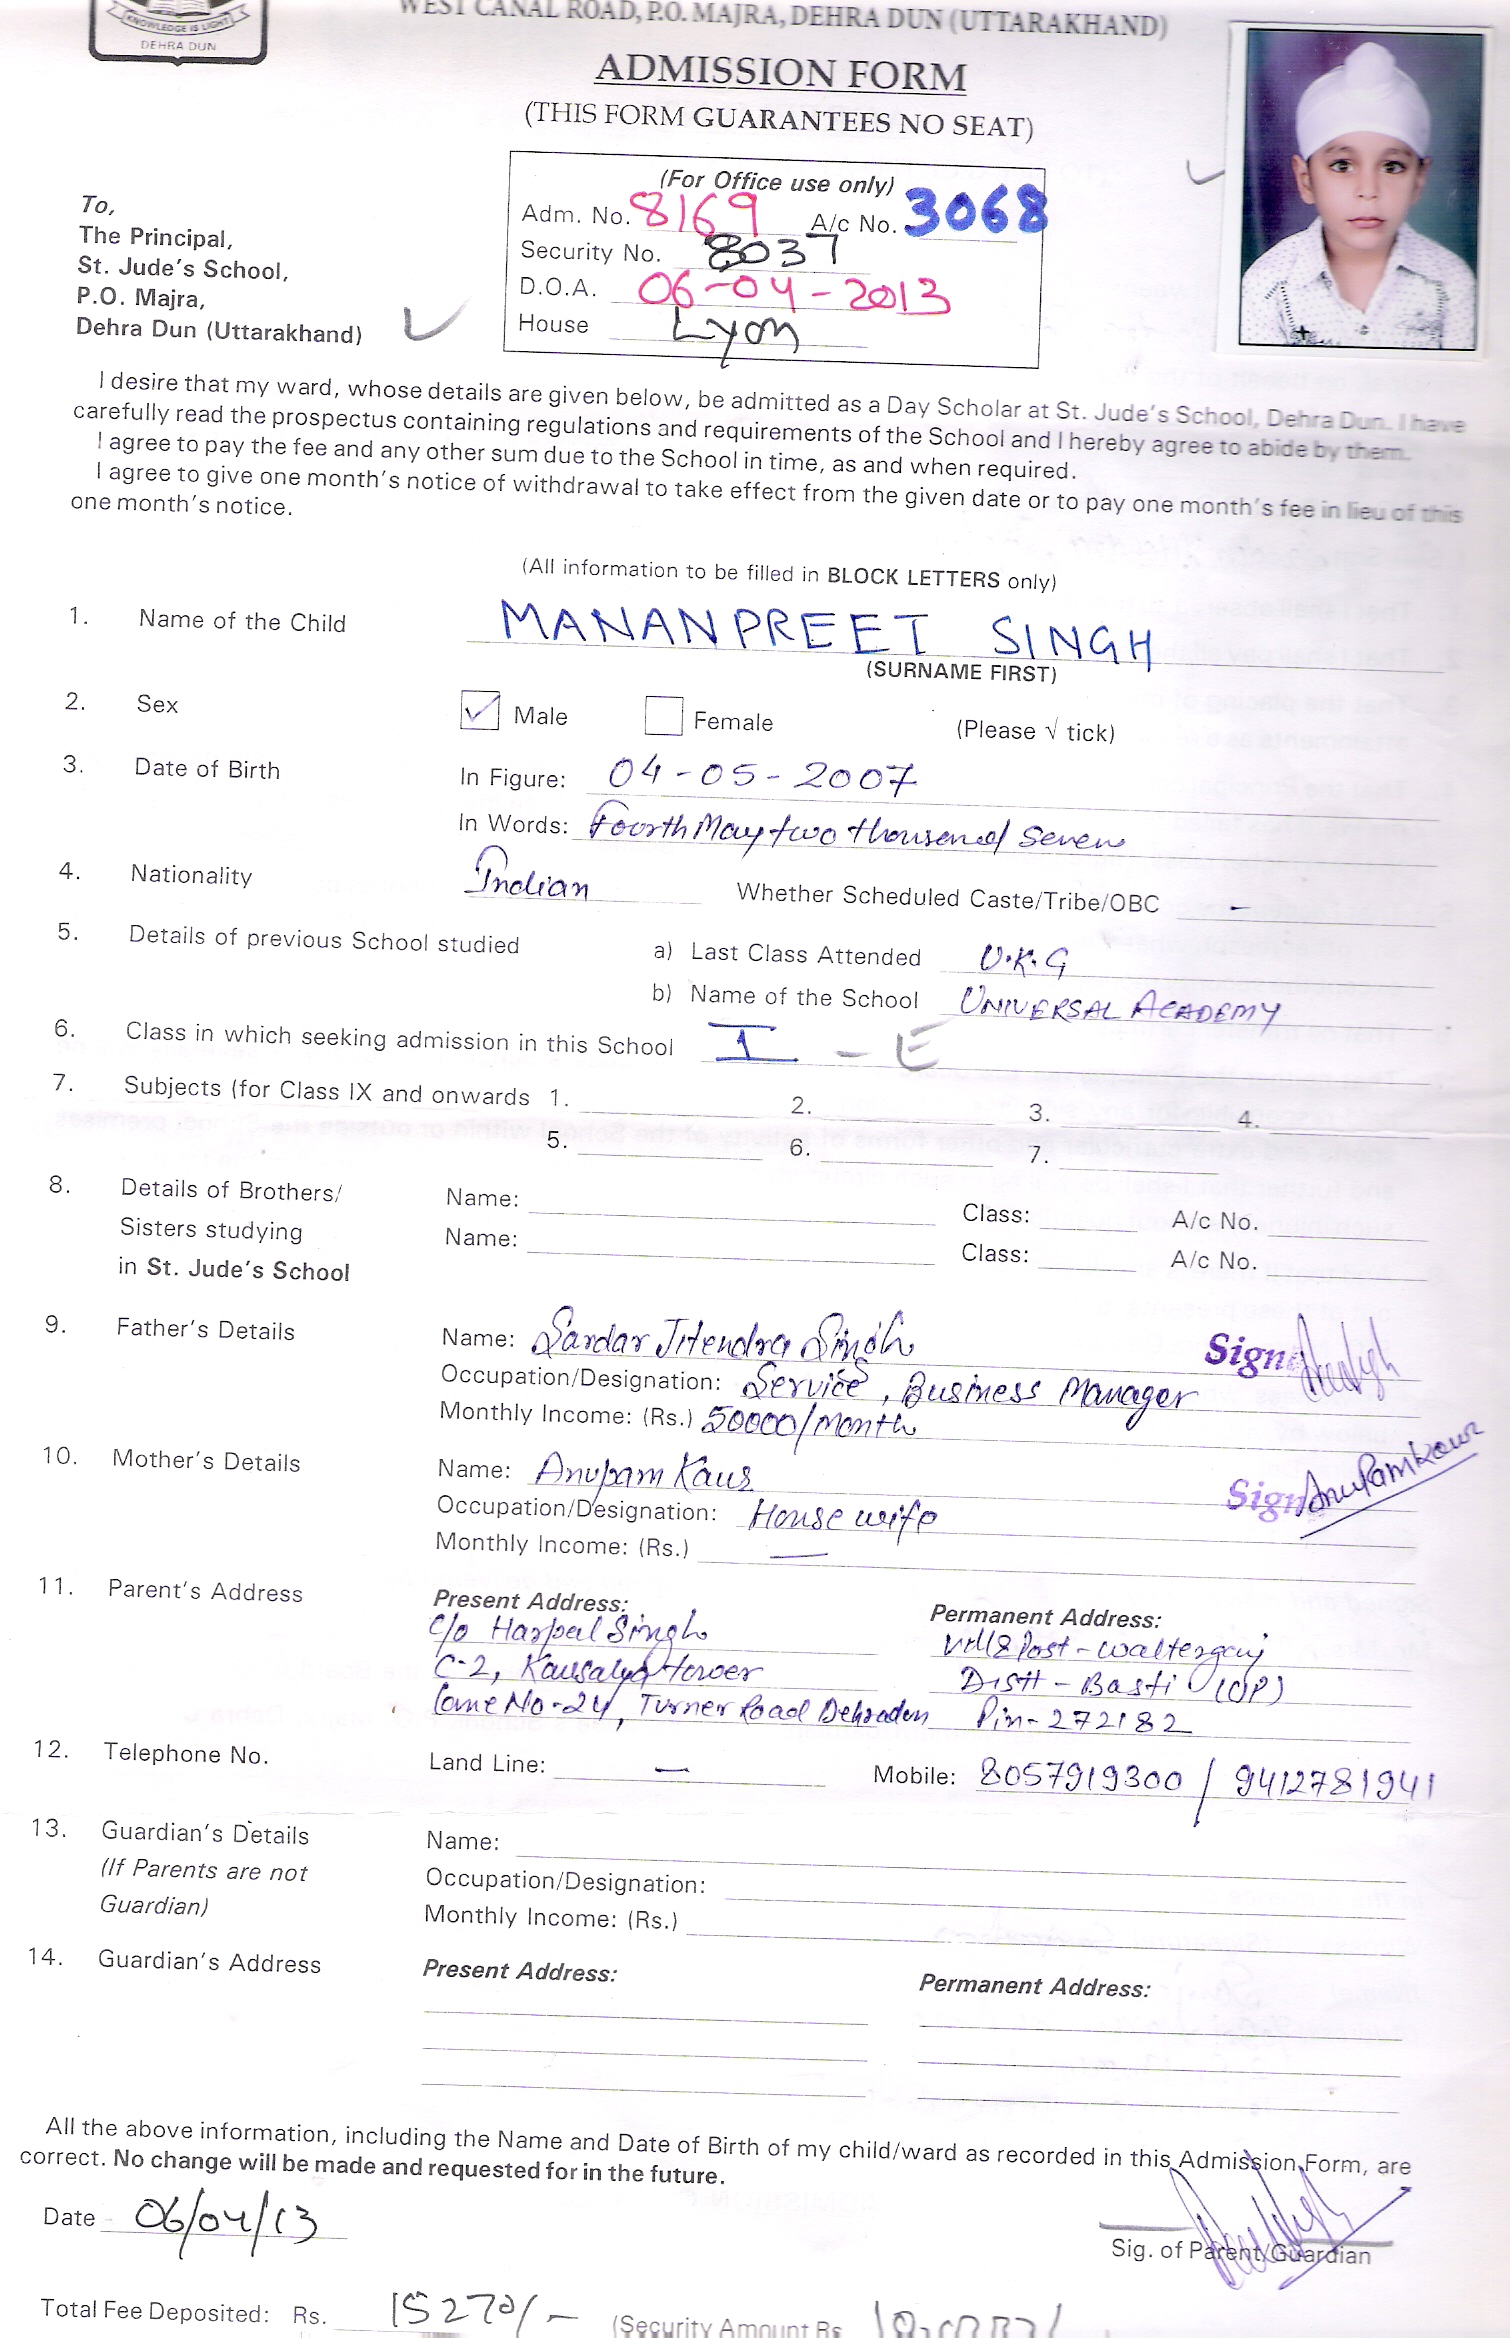 KNOWLEDGE IS LIGHT
DEHRA DUN
WEST CANAL ROAD, P.O. MAJRA, DEHRA DUN (UTTARAKHAND)
ADMISSION FORM
(THIS FORM GUARANTEES NO SEAT)
(For Office use only)
Adm. No. 8169 A/c No. 3068
Security No. 8037
D.O.A. 06-04-2013
House Lyon
To,
The Principal,
St. Jude's School,
P.O. Majra,
Dehra Dun (Uttarakhand)
I desire that my ward, whose details are given below, be admitted as a Day Scholar at St. Jude's School, Dehra Dun. I have
carefully read the prospectus containing regulations and requirements of the School and I hereby agree to abide by them.
I agree to pay the fee and any other sum due to the School in time, as and when required.
I agree to give one month's notice of withdrawal to take effect from the given date or to pay one month's fee in lieu of this
one month's notice.
(All information to be filled in BLOCK LETTERS only)
1. Name of the Child MANANPREET SINGH
(SURNAME FIRST)
2. Sex ✓ Male Female (Please √ tick)
3. Date of Birth In Figure: 04-05-2007
In Words: Fourth May two thousend Seven
4. Nationality Indian Whether Scheduled Caste/Tribe/OBC -
5. Details of previous School studied a) Last Class Attended U.K.G
b) Name of the School UNIVERSAL ACADEMY
6. Class in which seeking admission in this School I - E
7. Subjects (for Class IX and onwards 1. 2. 3. 4.
5. 6. 7.
8. Details of Brothers/ Name: Class: A/c No.
Sisters studying Name: Class: A/c No.
in St. Jude's School
9. Father's Details Name: Sardar Jitendra Singh Sign
Occupation/Designation: Service, Business Manager
Monthly Income: (Rs.) 50000/month
10. Mother's Details Name: Anupam Kaur Sign Anupamkour
Occupation/Designation: House wife
Monthly Income: (Rs.) —
11. Parent's Address Present Address: Permanent Address:
C/o Harpal Singh Vill& Post - Waltergанj
C-2, Kausalya tower Distt - Basti (UP)
Lane No-24, Turner Road Dehradun Pin- 272182
12. Telephone No. Land Line: — Mobile: 8057919300 / 9412781941
13. Guardian's Details Name:
(If Parents are not Occupation/Designation:
Guardian) Monthly Income: (Rs.)
14. Guardian's Address Present Address: Permanent Address:
All the above information, including the Name and Date of Birth of my child/ward as recorded in this Admission Form, are
correct. No change will be made and requested for in the future.
Date 06/04/13
Sig. of Parent/Guardian
Total Fee Deposited: Rs. 15270/- (Security Amount Rs